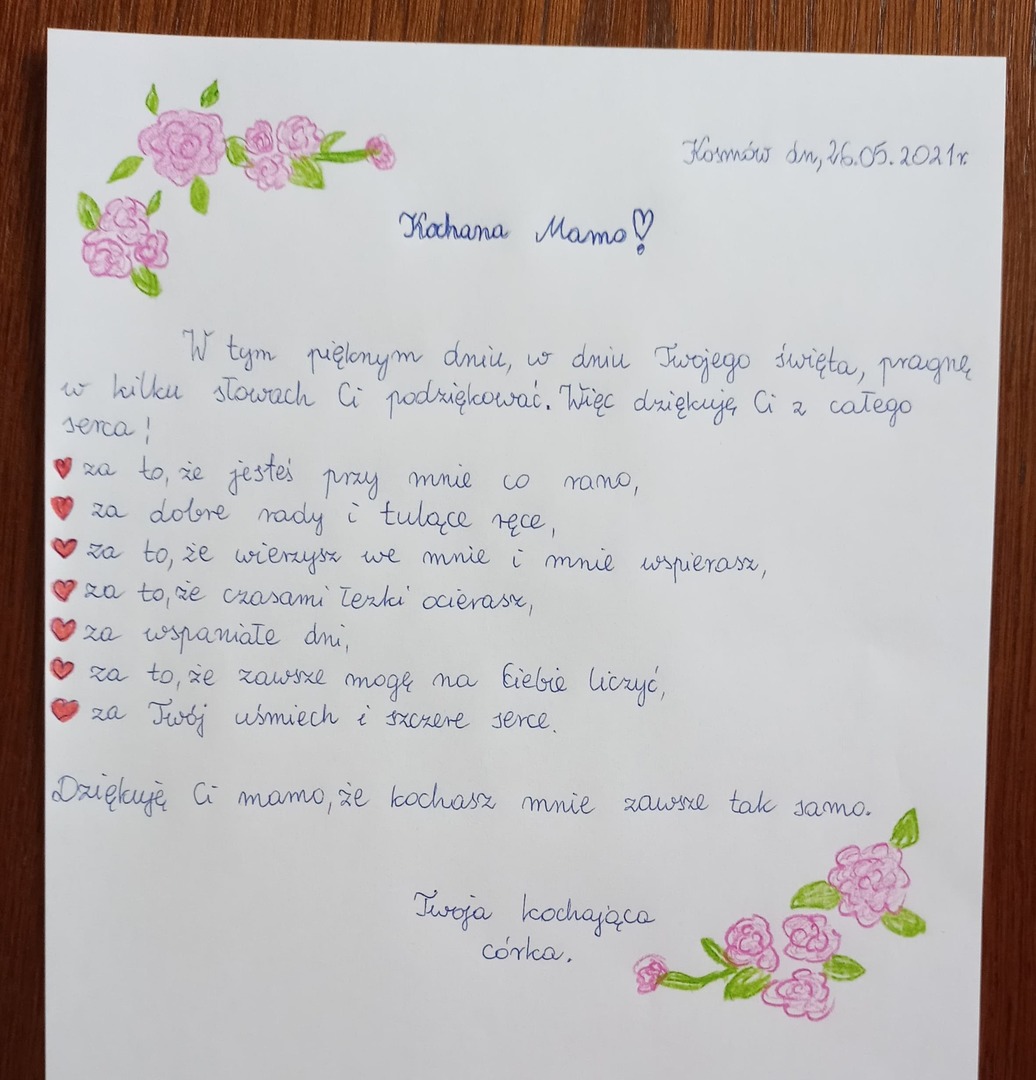 Kosmów dn, 26.05.2021r
Kochana Mamo!
W tym pięknym dniu, w dniu Twojego święta, pragnę
w kilku słowach Ci podziękować. Więc dziękuję Ci z całego
serca!
za to, że jesteś przy mnie co rano,
za dobre rady i tulące ręce,
za to, że wierzysz we mnie i mnie wspierasz,
za to, że czasami łezki ocierasz,
za wspaniałe dni,
za to, że zawsze mogę na Ciebie liczyć,
za Twój uśmiech i szczere serce.
Dziękuję Ci mamo, że kochasz mnie zawsze tak samo.
Twoja kochająca
córka.